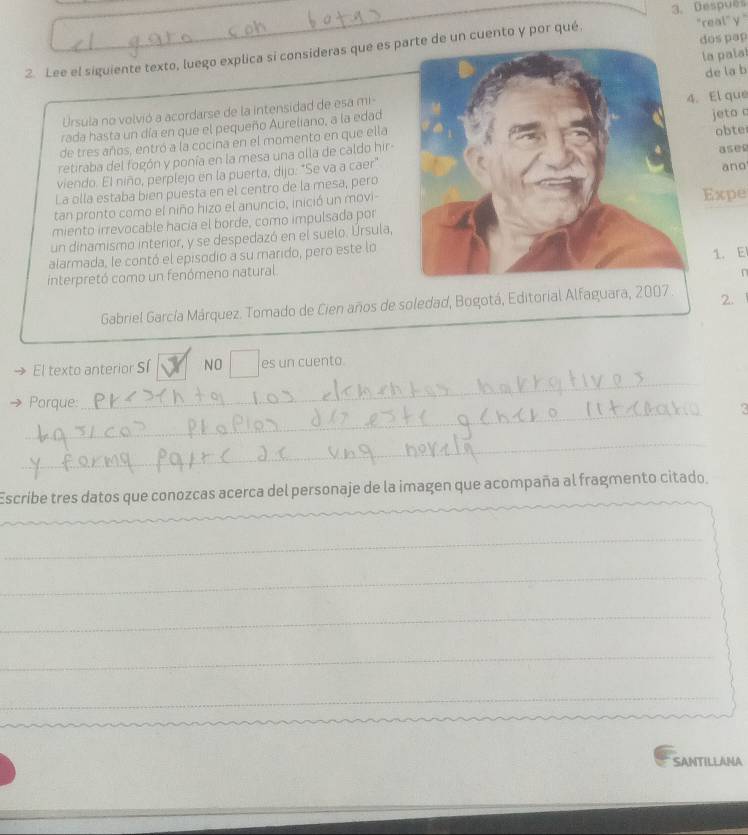 el gato con botas
2. Lee el siguiente texto, luego explica si consideras que es parte de un cuento y por qué.
Úrsula no volvió a acordarse de la intensidad de esa mi-
rada hasta un día en que el pequeño Aureliano, a la edad
de tres años, entró a la cocina en el momento en que ella
retiraba del fogón y ponía en la mesa una olla de caldo hir-
viendo. El niño, perplejo en la puerta, dijo: "Se va a caer"
La olla estaba bien puesta en el centro de la mesa, pero
tan pronto como el niño hizo el anuncio, inició un movi-
miento irrevocable hacia el borde, como impulsada por
un dinamismo interior, y se despedazó en el suelo. Úrsula,
alarmada, le contó el episodio a su marido, pero este lo
interpretó como un fenómeno natural.
Gabriel García Márquez. Tomado de Cien años de soledad, Bogotá, Editorial Alfaguara, 2007.
→ El texto anterior SÍ NO es un cuento.
→ Porque: presenta los elementos narrativos
basicos propios de este genero literario
y forma parte de una novela
Escribe tres datos que conozcas acerca del personaje de la imagen que acompaña al fragmento citado.
SANTILLANA
3. Después
"real" y
dos pap
la palal
de la b
4. El que
jeto
obte
aseg
ano
Expe
1. El
2.
3